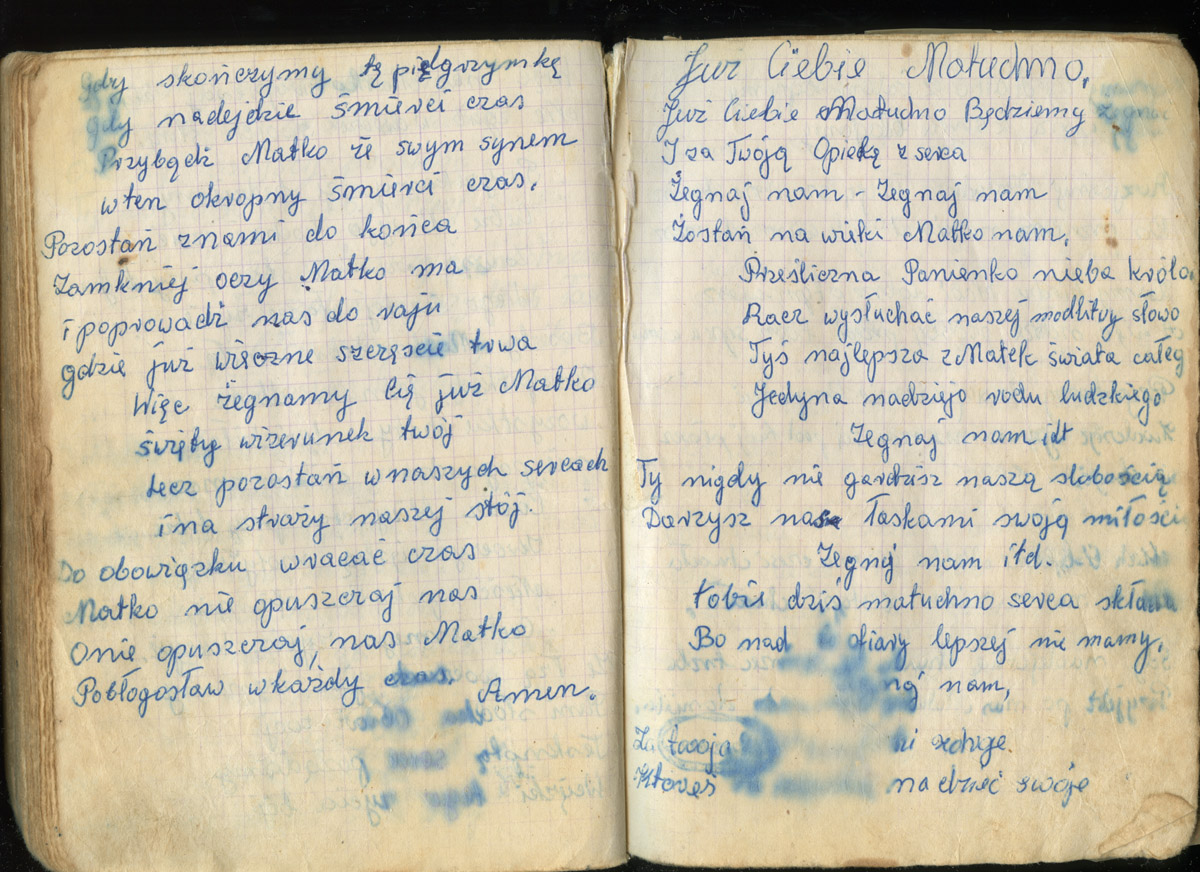 Gdy skończymy tę pielgrzymkę
Gdy nadejdzie śmierci czas
Przybądź Matko ze swym synem
w ten okropny śmierci czas.
Pozostań znami do końca
Zamkniej oczy Matko ma
i poprowadź nas do raju
gdzie już wieczne szczęście trwa
Więc żegnamy Cię już Matko
święty wizerunek twój
lecz pozostań w naszych sercach
i na straży naszej stój.
Do obowiązku wracać czas
Matko nie opuszczaj nas
O nie opuszczaj, nas Matko
Pobłogosław w każdy czas. Amen.
Już Ciebie Matuchno,
Już Ciebie Matuchno Będziemy
I za Twóją Opieką z serca
Żegnaj nam - Żegnaj nam
Zostań na wieki Matko nam.
Prześliczna Panienko nieba królo
Racz wysłuchać naszej modlitwy słowo
Tyś najlepsza z Matek świata całeg
Jedyna nadziejo rodu ludzkiego
Żegnaj nam idt
Ty nigdy nie gardzisz naszą słabością
Darzysz nas łaskami swoją miłości
Żegnj nam itd.
tobie dziś matuchno serca składa
Bo nad ofiary lepszej nie mamy.
nam,
Za twoja
Któreś na dzieć swóje